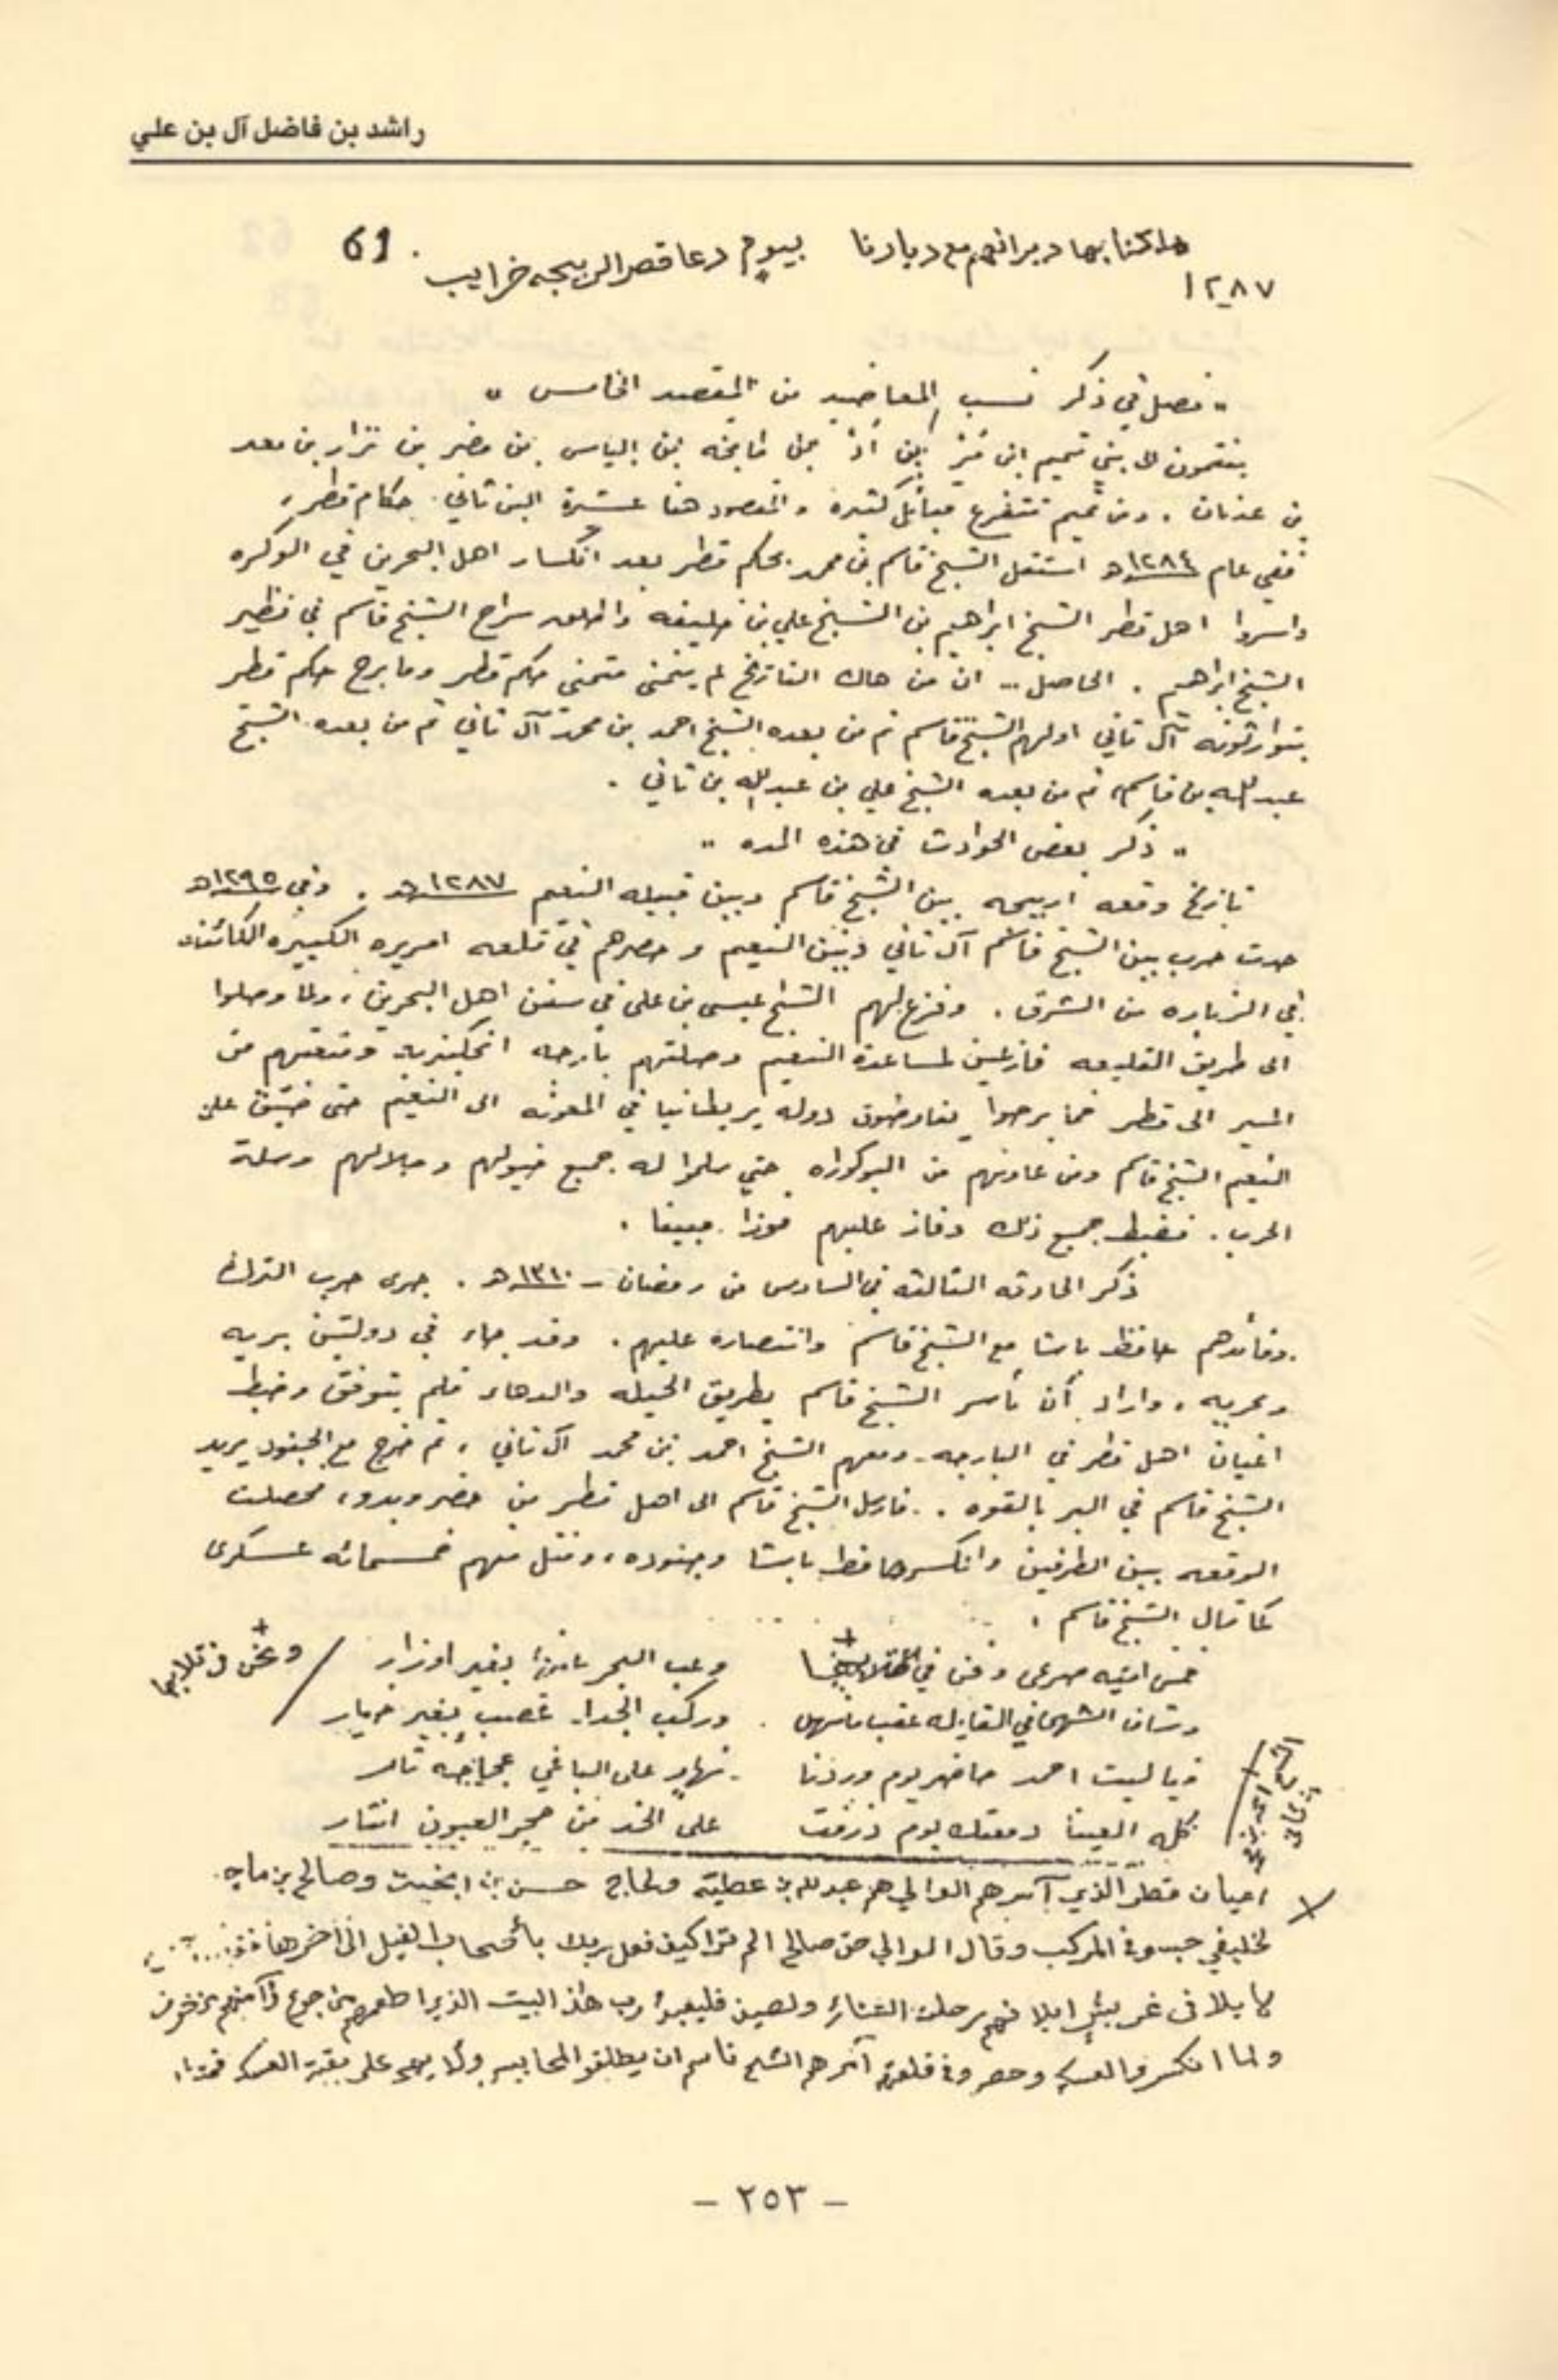 راشد بن فاضل آل بن علي
61
بيوم دعا قصر الربيجه خرايب
١٢٨٧
" فصل في ذكر نسب المعاضيد من المقصد الخامس "
ينتمون الى بني تميم ابن مُرّ بن أدّ بن طابخه بن إلياس بن مضر بن نزار بن معد
بن عدنان . ومن تميم تتفرع قبائل كثيرة والمقصود هنا عشيرة البن ثاني حكام قطر ،
ففي عام ١٢٨٤ه استقل الشيخ قاسم بن محمد بحكم قطر بعد انكسار اهل البحرين في الوكره
واسروا اهل قطر الشيخ ابراهيم بن الشيخ علي بن خليفه واطلق سراح الشيخ قاسم في نظير
الشيخ ابراهيم . الحاصل .. ان من هاك التاريخ لم يتمنى متمني حكم قطر وما برح حكم قطر
يتوارثونه آل ثاني اولهم الشيخ قاسم ثم من بعده الشيخ احمد بن محمد آل ثاني ثم من بعده الشيخ
عبدالله بن قاسم ثم من بعده الشيخ علي بن عبدالله بن ثاني .
" ذكر بعض الحوادث في هذه المده "
تاريخ وقعه اربيجه بين الشيخ قاسم وبين قبيله النعيم ١٢٨٧ه . وفي ١٢٩٥ه
حدث حرب بين الشيخ قاسم آل ثاني وبين النعيم وحصرهم في قلعه امريره الكبيره الكائنه
في الزباره من الشرق . وفزع لهم الشيخ عيسى بن علي في سفن اهل البحرين ، ولما وصلوا
الى طريق القليعه فازعين لمساعدة النعيم وصلتهم بارجه انكليزيه ومنعتهم من
المسير الى قطر فما برحوا يفاوضون دوله بريطانيا في المعونه الى النعيم حتى ضيّق على
النعيم الشيخ قاسم ومن عاونهم من البوكواره حتي سلموا له جميع خيولهم وحلالهم وسلة
الحرب . فضبط جميع ذلك وفاز عليهم فوزا مبينا .
ذكر الحادثه الثالثه في السادس من رمضان - ١٣١٠ه . جرى حرب الترك
وقائدهم حافظ باشا مع الشيخ قاسم وانتصاره عليهم . وقد جاء في دولتين بريه
وبحريه ، واراد أن يأسر الشيخ قاسم بطريق الحيله والدهاء فلم يتوفق وضبط
اعيان اهل قطر في البارجه ومعهم الشيخ احمد بن محمد آل ثاني ، ثم خرج مع الجنود يريد
الشيخ قاسم في البر بالقوه .. فارسل الشيخ قاسم الى اهل قطر من حضر وبدو ، فحصلت
الوقعه بين الطرفين وانكسر حافظ باشا وجنوده ، وقتل منهم خمسمائه عسكرى
كما قال الشيخ قاسم :
خمس اميّه صرعى وفن في وعب البحر بغير اوزار
وشاف الشهحاني القايله عقب ماسهل وركب الجدا غصب بغير خيار
ويا ليت احمد حاضر يوم وردنا نهار على الباغي عجاجه ثار
كله العينا دمعتك يوم ذرفت على الخد من حجر العيون انثار
اعيان قطر الذي آسرهم الوالي هم عبدلله بن عطيّه والحاج حسن بن ابخيت وصالح بن ماجد
لخليفي حبسو في المركب وقال الوالي حق صالح الم تر كيف فعل ربك بأصحاب الفيل الى آخرها
رحلة الشتاء ولصيف فليعبدوا رب هذا البيت الذي اطعمهم من جوع وآمنهم من خوف
ولما انكسرو العسكر وحصرو في قلعة آمرهم الشيخ قاسم ان يطلقو المحابيس
- ٢٥٣ -